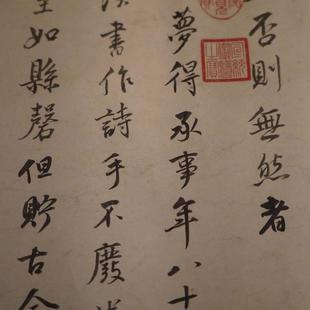 否則無然者
夢得承事年八十
書作詩手不廢
如縣磬但貯古今